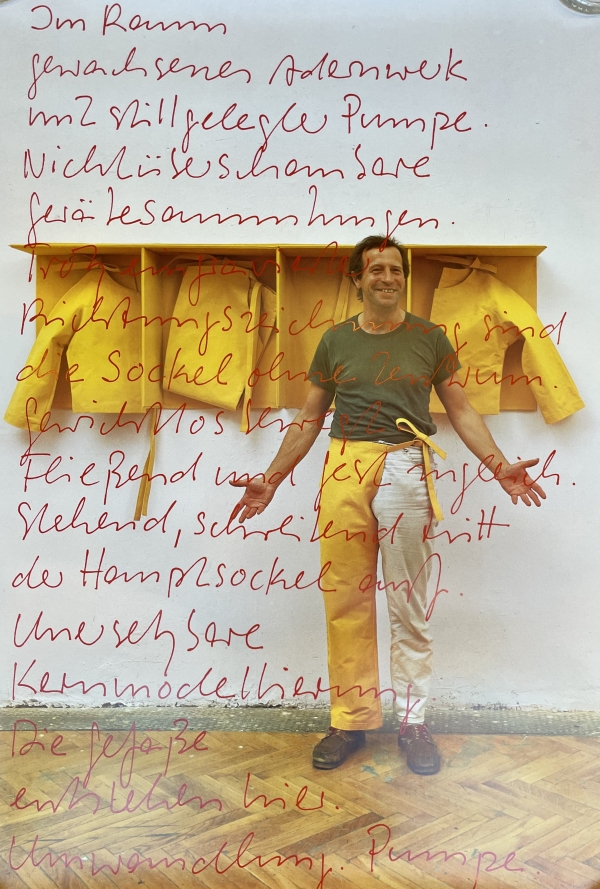 Im Raum
gewachsenes Adernwerk
mit stillgelegter Pumpe.
Nichtüberschaubare
Gerätesammlungen.
Trotz
Richtungszeichnung sind
die Sockel ohne Zentrum.
Gewichtlos bewegt.
Fließend und fest zugleich.
Stehend, schreitend tritt
der Hauptsockel auf.
Unersetzbare
Kernmodellierung.
Die Gefäße
entstehen hier.
Umwandlung. Pumpe.